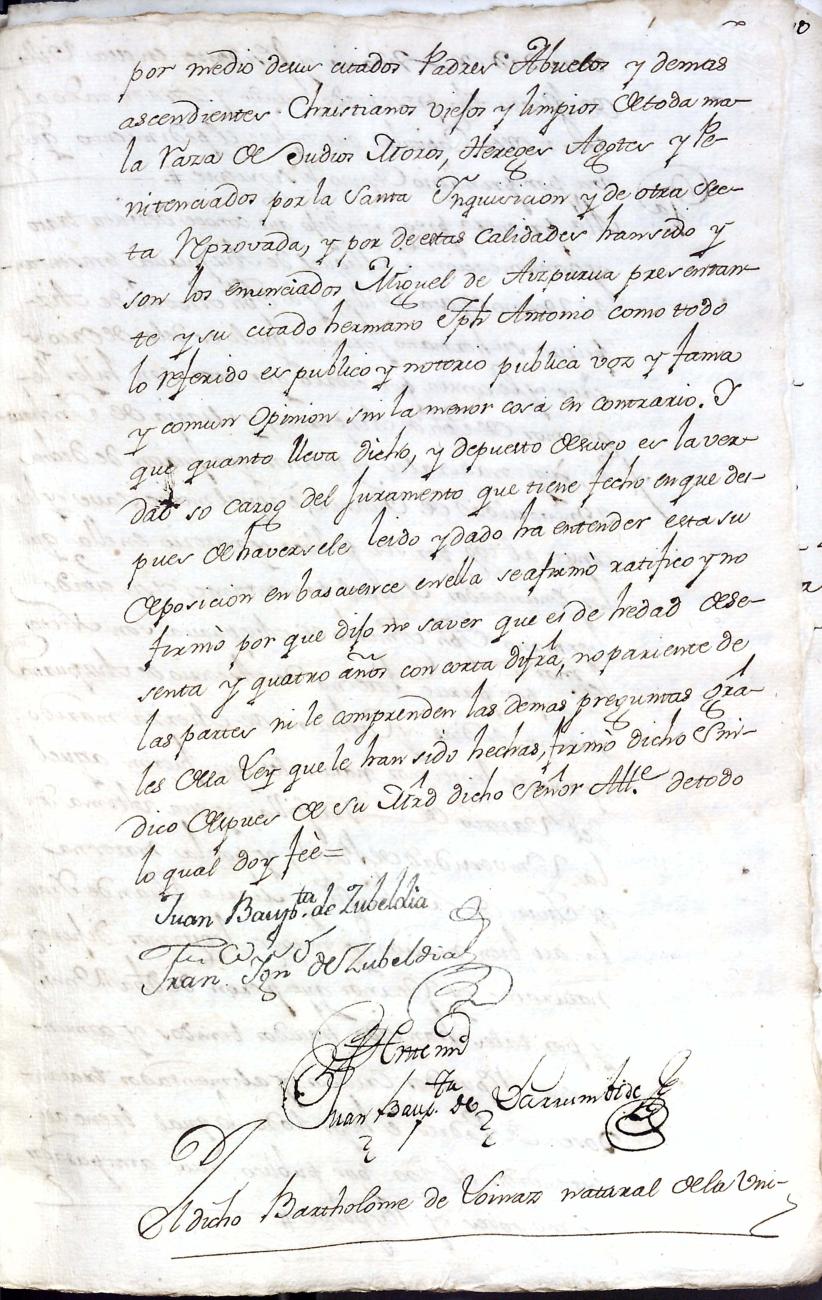 por medio desus citados Padres Abuelos y demas
ascendientes Christianos viejos y limpios de toda ma-
la raza de Judios Moros, Hereges Agotes y Pe-
nitenciados por la Santa Ynquisicion y de otra Sec-
ta reprovada, y por de estas Calidades han sido y
son los enunciados Miguel de Aizpurua presentan-
te y su citado hermano Jph Antonio como todo
lo referido es publico y notorio publica voz y fama
y comun opinion sin la menor cosa en contrario. Y
que quanto lleva dicho, y depuesto desuso es la ver-
dad so cargo del Juramento que tiene fecho en que des-
pues de haversele leido y dado ha entender esta su
deposicion en bascuence en ella se afirmò ratifico y no
firmò por que dijo no saver que es de hedad de se-
senta y quatro años con corta difra, no pariente de
las partes ni le comprenden las demas preguntas gra-
les de la Ley que le han sido hechas, firmò dicho Sini-
dico despues de su Mrd dicho Señor Alle. de todo
lo qual doy feè=
Juan Bapta. de Zubeldia
Franco. Ygno de Zubeldia
Ante mi
Juan Bapta de Larrumbide
El dicho Bartholome de natural de la Uni-